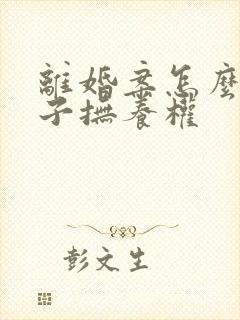 離婚案怎麼
子撫養權
彭文生